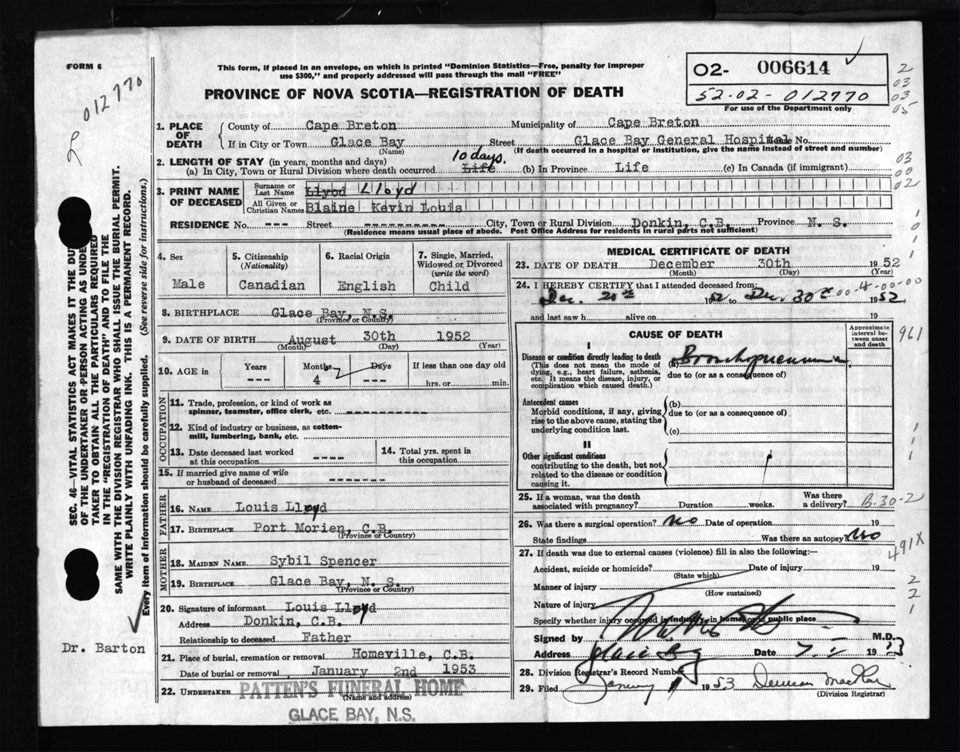 FORM 6
This form, if placed in an envelope, on which is printed "Dominion Statistics—Free, penalty for improper
use $300," and properly addressed will pass through the mail "FREE"
PROVINCE OF NOVA SCOTIA—REGISTRATION OF DEATH
02- 006614
52-02-012770
For use of the Department only
2
03
03
05
012770
1. PLACE OF DEATH
County of Cape Breton Municipality of Cape Breton
If in City or Town Glace Bay Street Glace Bay General Hospital No.
(Name) (If death occurred in a hospital or institution, give the name instead of street and number)
2. LENGTH OF STAY (in years, months and days) 10 days.
(a) In City, Town or Rural Division where death occurred Life (b) In Province Life (c) In Canada (if immigrant)
03
00
02
3. PRINT NAME OF DECEASED
Surname or Last Name Llyod Lloyd
All Given or Christian Names Blaine Kevin Louis
RESIDENCE No. --- Street ---------- City, Town or Rural Division Donkin, C.B. Province N. S.
(Residence means usual place of abode. Post Office Address for residents in rural parts not sufficient)
4. Sex Male
5. Citizenship (Nationality) Canadian
6. Racial Origin English
7. Single, Married, Widowed or Divorced (write the word) Child
8. BIRTHPLACE Glace Bay, N.S.
(Province or Country)
9. DATE OF BIRTH August 30th 1952
(Month) (Day) (Year)
10. AGE in Years --- Months 4 Days --- If less than one day old
hrs. or min.
OCCUPATION
11. Trade, profession, or kind of work as
spinner, teamster, office clerk, etc.
12. Kind of industry or business, as cotton-
mill, lumbering, bank, etc.
13. Date deceased last worked
at this occupation ----
14. Total yrs. spent in
this occupation
15. If married give name of wife
or husband of deceased
FATHER
16. NAME Louis Lloyd
17. BIRTHPLACE Port Morien, C.B.
(Province or Country)
MOTHER
18. MAIDEN NAME Sybil Spencer
19. BIRTHPLACE Glace Bay, N. S.
(Province or Country)
20. Signature of informant Louis Lloyd
Address Donkin, C.B.
Relationship to deceased Father
21. Place of burial, cremation or removal Homeville, C.B.
Date of burial or removal January 2nd 1953
22. UNDERTAKER PATTEN'S FUNERAL HOME
(Name and address)
GLACE BAY, N.S.
MEDICAL CERTIFICATE OF DEATH
23. DATE OF DEATH December 30th 1952
(Month) (Day) (Year)
24. I HEREBY CERTIFY that I attended deceased from:
Dec. 20th 1952 to Dec 30th 1952
4-00-00
and last saw h alive on 19
CAUSE OF DEATH
Approximate interval between onset and death
Disease or condition directly leading to death
(This does not mean the mode of
dying, e.g., heart failure, asthenia,
etc. It means the disease, injury, or
complication which caused death.)
(a) Bronchopneumonia
due to (or as a consequence of)
Antecedent causes
Morbid conditions, if any, giving
rise to the above cause, stating the
underlying condition last.
(b)
due to (or as a consequence of)
(c)
II
Other significant conditions
contributing to the death, but not
related to the disease or condition
causing it.
961
25. If a woman, was the death
associated with pregnancy? Duration weeks. Was there
a delivery?
B-30-2
26. Was there a surgical operation? No Date of operation 19
State findings Was there an autopsy? No
491X
27. If death was due to external causes (violence) fill in also the following:-
Accident, suicide or homicide? Date of injury 19
(State which)
Manner of injury
(How sustained)
Nature of injury
Specify whether injury occurred in industry, in home or in public place
Signed by M.D.
Address Glace Bay Date 19
28. Division Registrar's Record Number
29. Filed January 1953
(Division Registrar)
SEC. 46—VITAL STATISTICS ACT MAKES IT THE DUTY
OF THE UNDERTAKER OR PERSON ACTING AS UNDER-
TAKER TO OBTAIN ALL THE PARTICULARS REQUIRED
IN THE "REGISTRATION OF DEATH" AND TO FILE THE
SAME WITH THE DIVISION REGISTRAR WHO SHALL ISSUE THE BURIAL PERMIT.
WRITE PLAINLY WITH UNFADING INK. THIS IS A PERMANENT RECORD.
Every item of information should be carefully supplied. (See reverse side for instructions.)
Dr. Barton